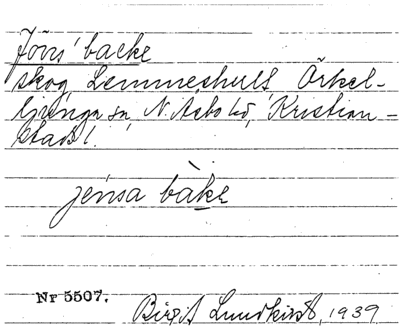 Jöns' backe
skog, Lemmeshult Örkel-
ljunga sn, N. Åsbo hd, Kristian-
stads l.
jénsa bàke
Nr 5507.
Birgit Lundkvist, 1939